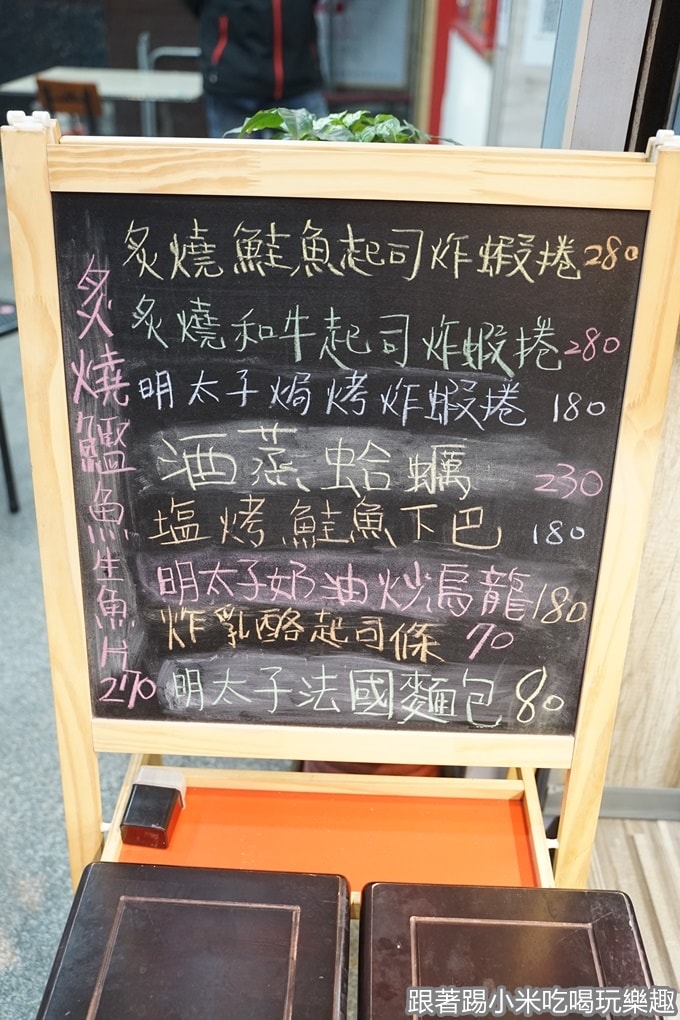 炙燒鮭魚起司炸蝦捲280
炙燒和牛起司炸蝦捲280
明太子焗烤炸蝦捲 180
酒蒸蛤蠣 230
塩烤鮭魚下巴 180
明太子奶油炒烏龍180
炸乳酪起司條 70
明太子法國麵包 80
炙燒鰹魚生魚片270
跟著踢小米吃喝玩樂趣